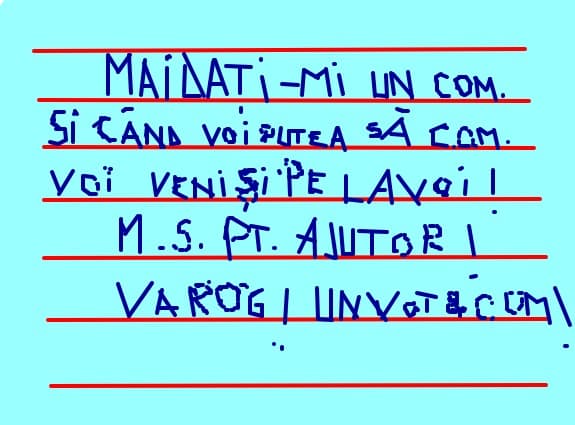 MAIDATI-MI UN COM.
SI CÂND VOI PUTEA SĂ COM.
VOI VENI ŞI PE LA VOI!
M.S. PT. AJUTOR!
VA ROG! UN VOT & COM!